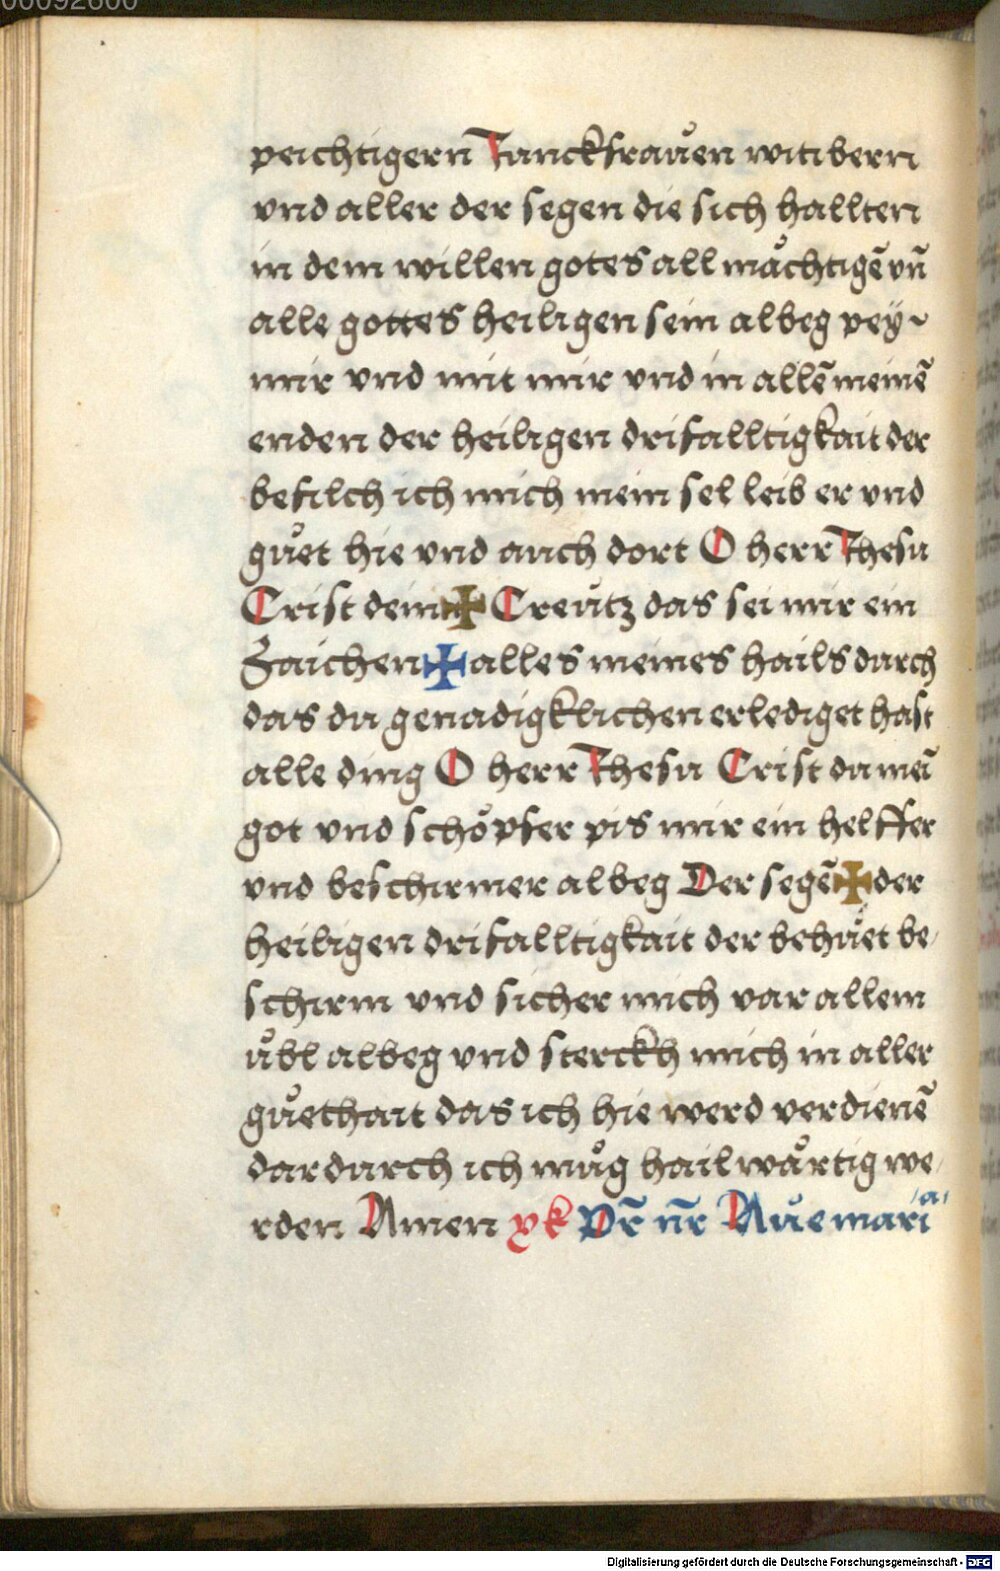 00092600
peichtigern Junckfrauͦen witibern
vnd aller der segen die sich hallten
in dem willen gotes all maͤchtigē vn̄
alle gottes heiligen sein albeg peÿ
mir vnd mit mir vnd in allē meinē
enden der heiligen drifalltigkait der
befilch ich mich mein sel leib er vnd
guͦet hie vnd auch dort O herr Jhesu
Crist dein ✠ Creuͦtz das sei mir ein
Zaichen ✠ alles meines hails durch
das du genadigklichen erlediget hast
alle ding O herr Jhesu Crist du mei̅
got vnd schoͤpfer pis mir ein helffer
vnd beschirmer albeg Der segē ✠ der
heiligen drifalltigkait der behuͤet be
schirm vnd sicher mich vor allem
uͤbl albeg vnd sterckh mich in aller
guͦethait das ich hie werd verdienē
dardurch ich muͤg hailwaͤrtig we
rden Amen Pr̄ nr̄ Auͦe maria
Digitalisierung gefördert durch die Deutsche Forschungsgemeinschaft - DFG